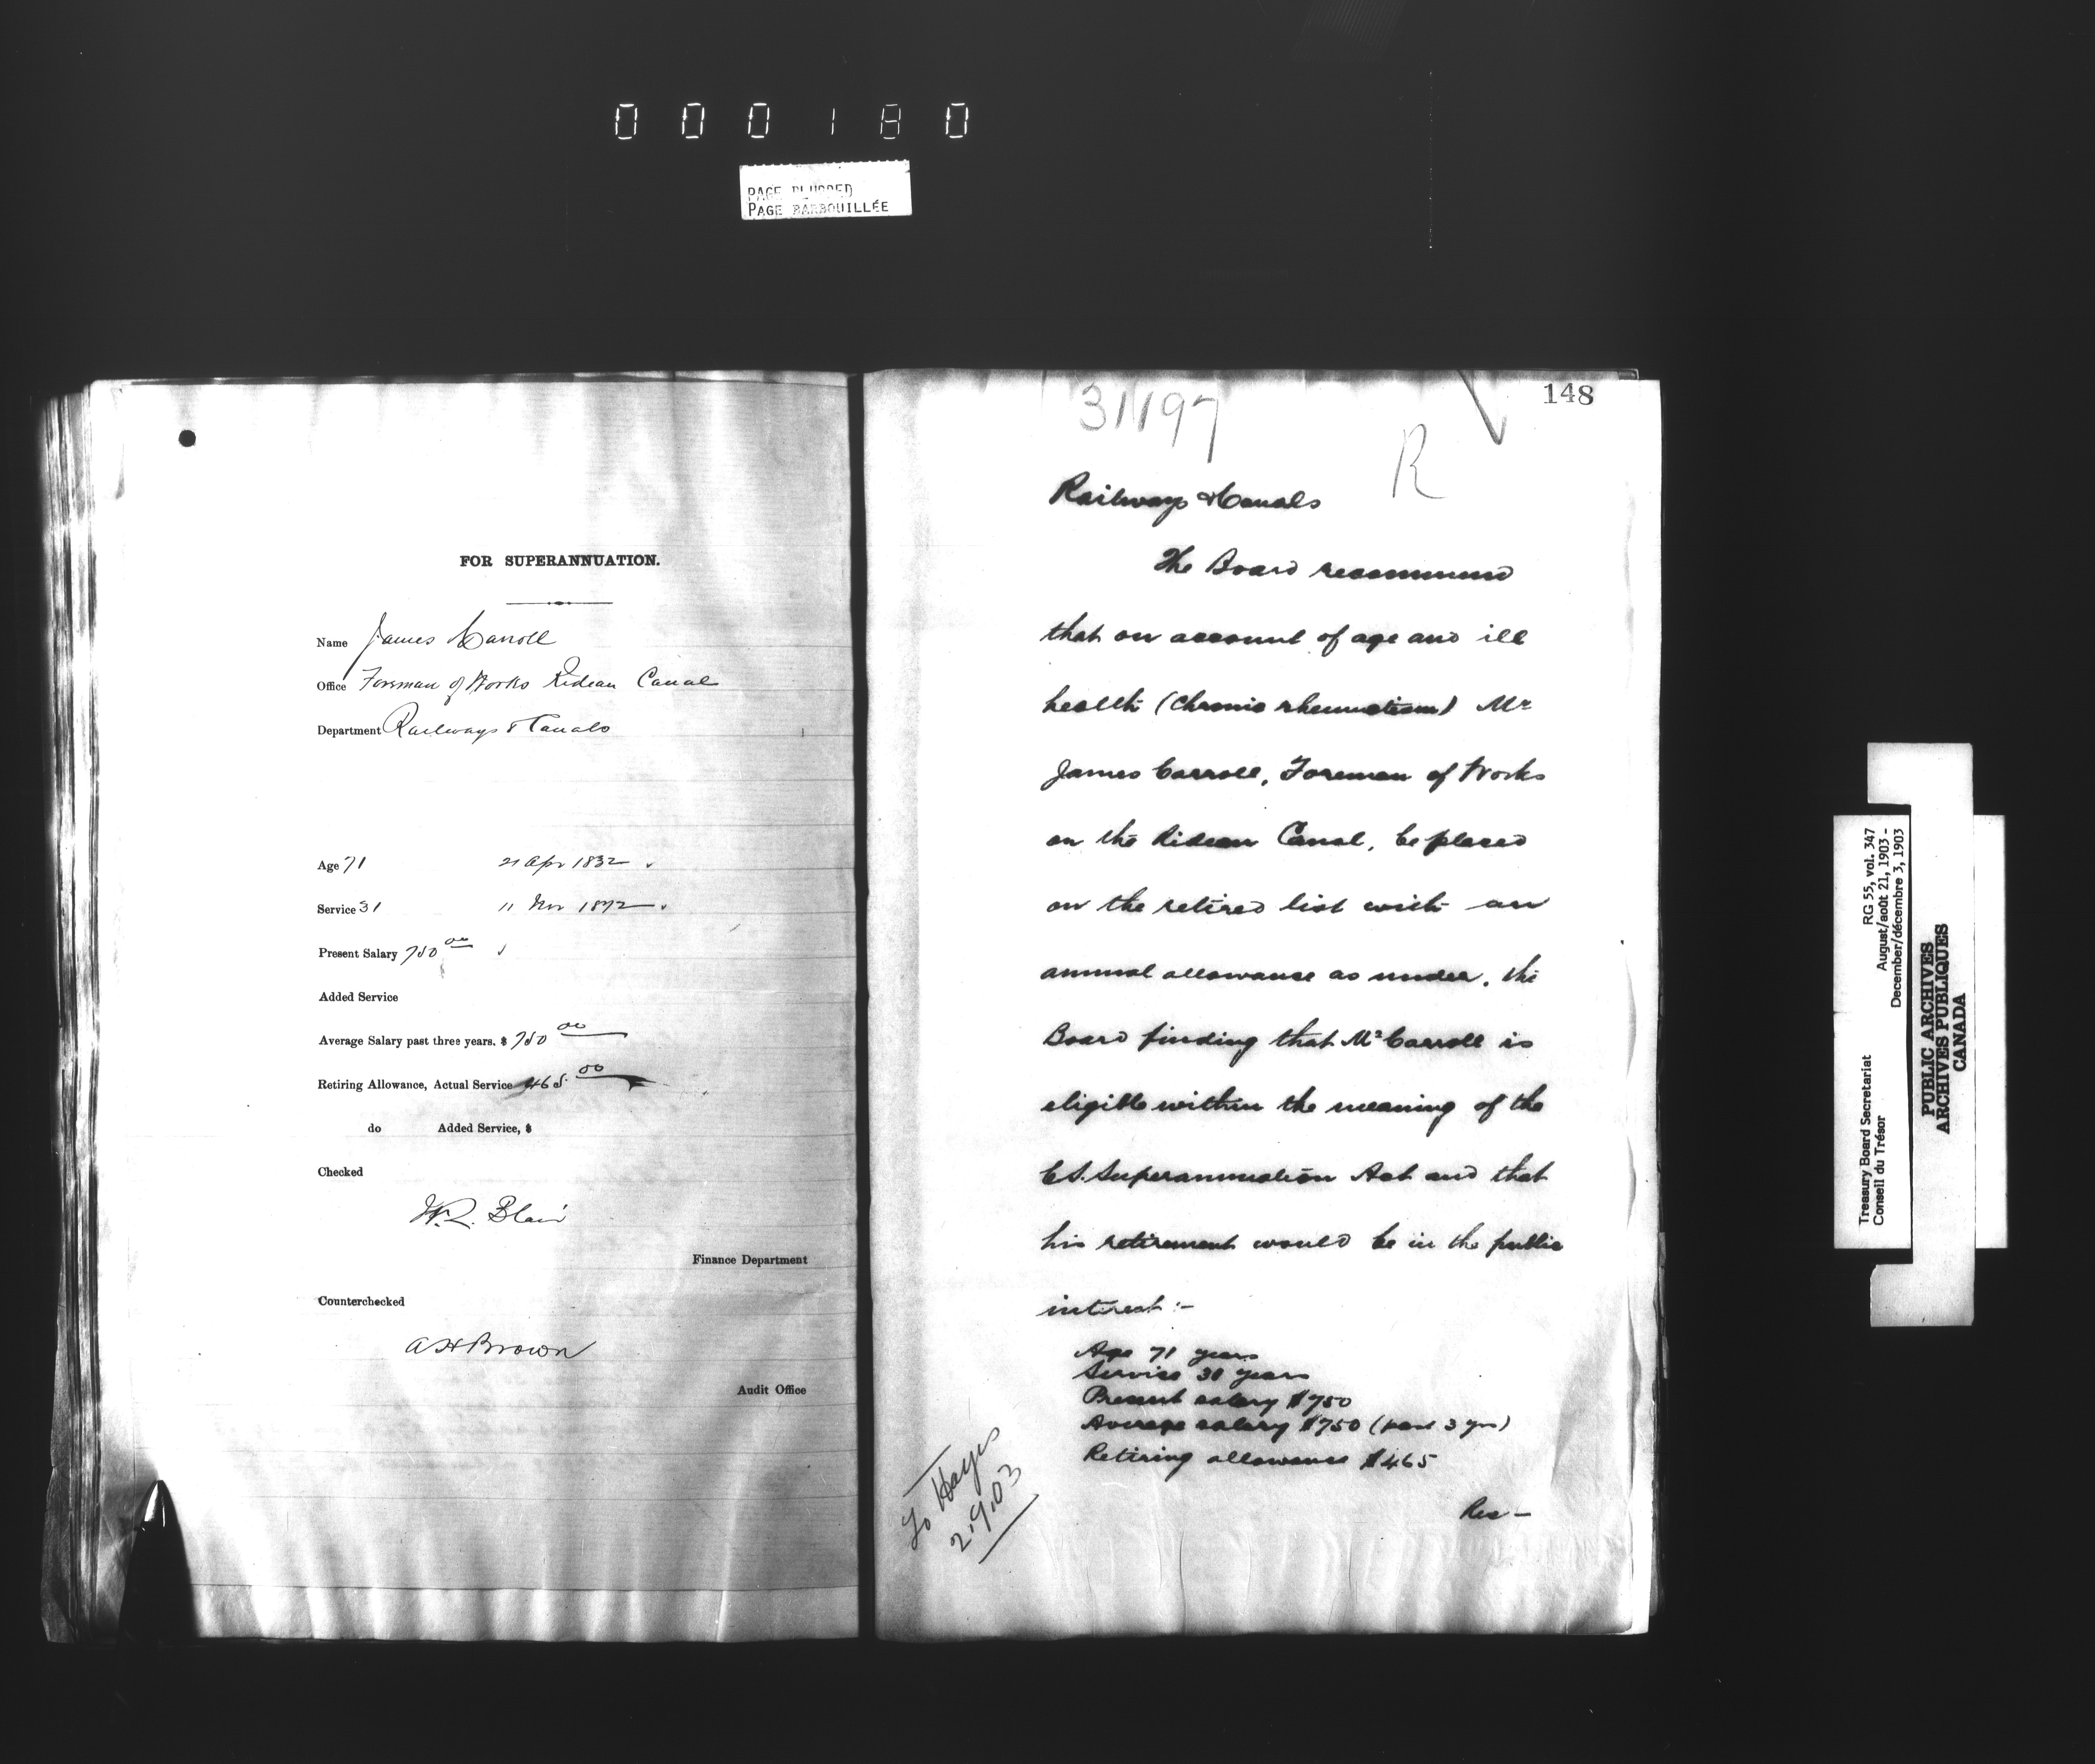 000180
PAGE BLURRED
PAGE BARBOUILLÉE
FOR SUPERANNUATION.
Name James Carroll
Office Foreman of Works Rideau Canal
Department Railways & Canals
Age 71 21 Apr 1832
Service 31 11 Nov 1872
Present Salary 750 00
Added Service
Average Salary past three years. $ 750 00
Retiring Allowance, Actual Service 465. 00
do Added Service, $
Checked
W.R. Blair
Finance Department
Counterchecked
A H Brown
Audit Office
148
31197
R
Railways & Canals
The Board recommend
that on account of age and ill
health (Chronic rheumatism) Mr
James Carroll, Foreman of Works
on the Rideau Canal, be placed
on the retired list with an
annual allowance as under, the
Board finding that Mr Carroll is
eligible within the meaning of the
C.S. Superannuation Act and that
his retirement would be in the public
interest :-
Age 71 years
Service 31 years
Present salary $750
Average salary $750 (past 3 yrs)
Retiring allowance $465
Rec -
To Hayes
2.9.03
Treasury Board Secretariat RG 55, vol. 347
Conseil du Trésor August/août 21, 1903 -
December/décembre 3, 1903
PUBLIC ARCHIVES
ARCHIVES PUBLIQUES
CANADA